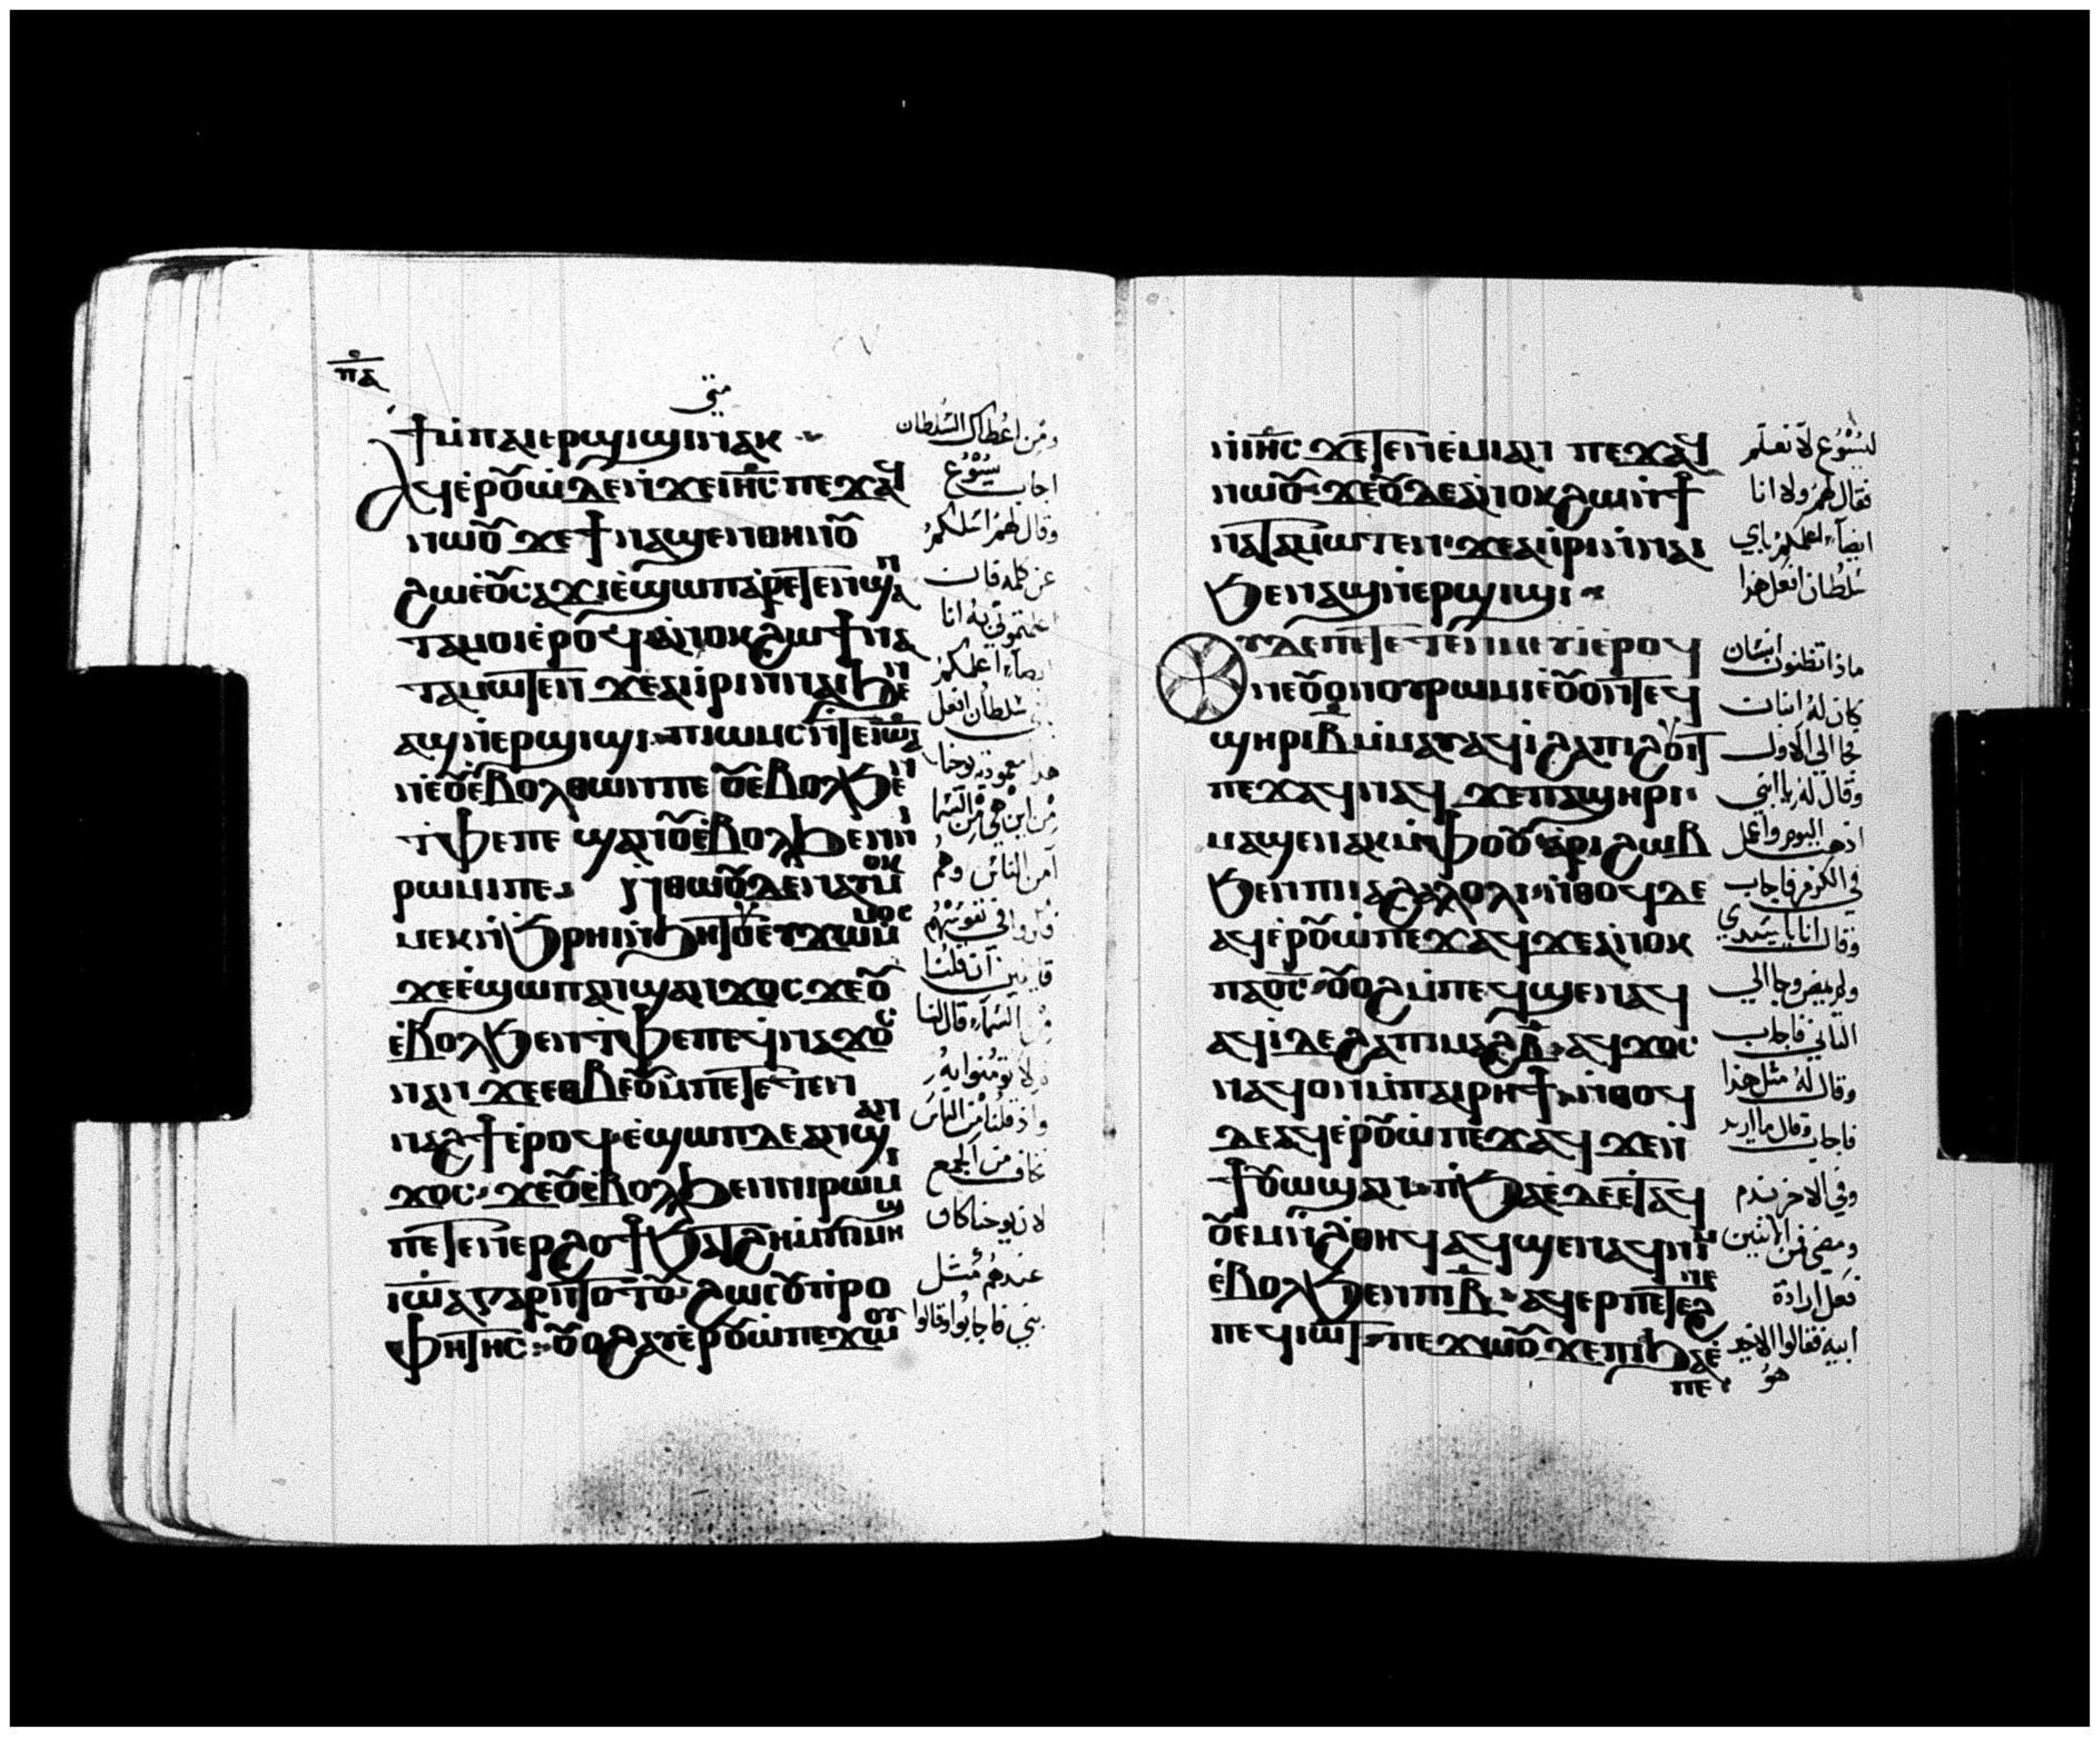 ⲡⲁ
متى
ϯⲙⲡⲁⲓⲉⲣϣⲓϣⲓ ⲛⲁⲕ
ⲁϥⲉⲣⲟⲩⲱ ⲇⲉ ⲛϫⲉ ⲓⲏⲥ ⲡⲉϫⲁϥ
ⲛⲱⲟⲩ ϫⲉ ϯⲛⲁϣⲉⲛ ⲑⲏⲛⲟⲩ
ϩⲱ ⲉⲟⲩⲥⲁϫⲓ ⲉϣⲱⲡ ⲁⲣⲉⲧⲉⲛϣⲁⲛ
ⲧⲁⲙⲟⲓ ⲉⲣⲟϥ ⲁⲛⲟⲕ ϩⲱ ϯⲛⲁ
ⲧⲁⲙⲱⲧⲉⲛ ϫⲉ ⲁⲓⲓⲣⲓ ⲛⲛⲁⲓ ϧⲉⲛ
ⲁϣ ⲛⲉⲣϣⲓϣⲓ ⲡⲓⲱⲙⲥ ⲛⲧⲉ ⲓⲱⲁ
ⲛⲉ ⲟⲩⲉⲃⲟⲗ ⲑⲱⲛ ⲡⲉ ⲟⲩⲉⲃⲟⲗ ϧⲉⲛ
ⲧⲫⲉ ⲡⲉ ϣⲁⲛ ⲟⲩⲉⲃⲟⲗ ϧⲉⲛ ⲛⲓ
ⲣⲱⲙⲓ ⲡⲉ ⲛⲑⲱⲟⲩ ⲇⲉ ⲛⲁⲩⲙⲟⲕ
ⲙⲉⲕ ⲛϧⲣⲏⲓ ⲛϧⲏⲧⲟⲩ ⲉⲩϫⲱ ⲙⲙⲟⲥ
ϫⲉ ⲉϣⲱⲡ ⲁⲛϣⲁⲛϫⲟⲥ ϫⲉ ⲟⲩ
ⲉⲃⲟⲗ ϧⲉⲛ ⲧⲫⲉ ⲡⲉ ϥⲛⲁϫⲟⲥ
ⲛⲁⲛ ϫⲉ ⲉⲑⲃⲉ ⲟⲩ ⲙⲡⲉⲧⲉⲧⲉⲛ
ⲛⲁϩϯ ⲉⲣⲟϥ ⲉϣⲱⲡ ⲇⲉ ⲁⲛϣⲁⲛ
ϫⲟⲥ ϫⲉ ⲟⲩⲉⲃⲟⲗ ϧⲉⲛ ⲛⲓⲣⲱⲙⲓ
ⲡⲉ ⲧⲉⲛⲉⲣϩⲟϯ ϧⲁⲧϩⲏ ⲙⲡⲓⲙⲏϣ
ⲓⲱⲁ ⲅⲁⲣ ⲛⲧⲟⲧⲟⲩ ϩⲱⲥ ⲟⲩⲡⲣⲟ
ⲫⲏⲧⲏⲥ ⲟⲩⲟϩ ⲁⲩⲉⲣⲟⲩⲱ ⲡⲉϫⲱⲟⲩ
ومن اعطاك السلطان
اجاب يسوع
وقال لهم اسلكم
عن كلمه فان
اعلمتموني به انا
ايضا اعلمكم
سلطان افعل
هدا معموديه يوحنا
من اين هي من السما
ام من الناس وهم
فكروا في نفوسهم
قايلين ان قلنا
من السماء قال لنا
ولا تومنوا به
واذ قلنا من الناس
نخاف من الجمع
لان يوحنا كان
عندهم مثل
نبي فاجابوا وقالوا
ⲛⲓⲏⲥ ϫⲉ ⲧⲉⲛⲉⲙⲓ ⲁⲛ ⲡⲉϫⲁϥ
ⲛⲱⲟⲩ ϫⲉ ⲟⲩⲇⲉ ⲁⲛⲟⲕ ϩⲱ ⲛϯ
ⲛⲁⲧⲁⲙⲱⲧⲉⲛ ϫⲉ ⲁⲓⲓⲣⲓ ⲛⲛⲁⲓ
ϧⲉⲛ ⲁϣ ⲛⲉⲣϣⲓϣⲓ
ⲟⲩ ⲇⲉ ⲡⲉⲧⲉⲧⲉⲛⲙⲉⲩⲓ ⲉⲣⲟϥ
ⲛⲉ ⲟⲩⲟⲛ ⲟⲩⲣⲱⲙⲓ ⲉⲟⲩⲟⲛⲧⲉϥ
ϣⲏⲣⲓ ⲃ ⲙⲙⲁⲩ ⲁϥⲓ ϩⲁ ⲡⲓϩⲟⲩⲓⲧ
ⲡⲉϫⲁϥ ⲛⲁϥ ϫⲉ ⲡⲁϣⲏⲣⲓ
ⲙⲁϣⲉⲛⲁⲕ ⲙⲫⲟⲟⲩ ⲁⲣⲓϩⲱⲃ
ϧⲉⲛ ⲡⲓⲓⲁϩⲁⲗⲟⲗⲓ ⲛⲑⲟϥ ⲇⲉ
ⲁϥⲉⲣⲟⲩⲱ ⲡⲉϫⲁϥ ϫⲉ ⲁⲛⲟⲕ
ⲡⲁⲟⲥ ⲟⲩⲟϩ ⲙⲡⲉϥϣⲉⲛⲁϥ
ⲁϥⲓ ⲇⲉ ϩⲁ ⲡⲓⲙⲁϩⲃ ⲁϥϫⲟⲥ
ⲛⲁϥ ⲟⲛ ⲙⲡⲁⲓⲣⲏϯ ⲛⲑⲟϥ
ⲇⲉ ⲁϥⲉⲣⲟⲩⲱ ⲡⲉϫⲁϥ ϫⲉ ⲛ
ϯⲟⲩⲱϣ ⲁⲛ ⲉⲡϧⲁⲉ ⲇⲉ ⲉⲧⲁϥ
ⲟⲩⲉⲙ ⲛϩⲑⲏϥ ⲁϥϣⲉⲛⲁϥ ⲛⲓⲙ
ⲉⲃⲟⲗ ϧⲉⲛ ⲡⲓⲃ ⲁϥⲉⲣ ⲡⲉⲧⲉϩⲛⲉ
ⲡⲉϥⲓⲱⲧ ⲡⲉϫⲱⲟⲩ ϫⲉ ⲡⲓϧⲁⲉ
ⲡⲉ
ليسوع لا نعلم
فقال لهم ولا انا
ايضا اعلمكم باي
سلطان افعل هذا
ماذا تظنون انسان
كان له ابنان
فجا الى الاول
وقال له يا ابني
اذهب اليوم واعمل
في الكرم فاجاب
وقال انا يا سيدي
ولم يمض وجا الى
الثاني فاجاب
وقال له مثل هذا
فاجاب وقال ما اريد
وفي الاخر ندم
ومضى فمن الاثنين
فعل ارادة
ابيه فقالوا الاخير
هو